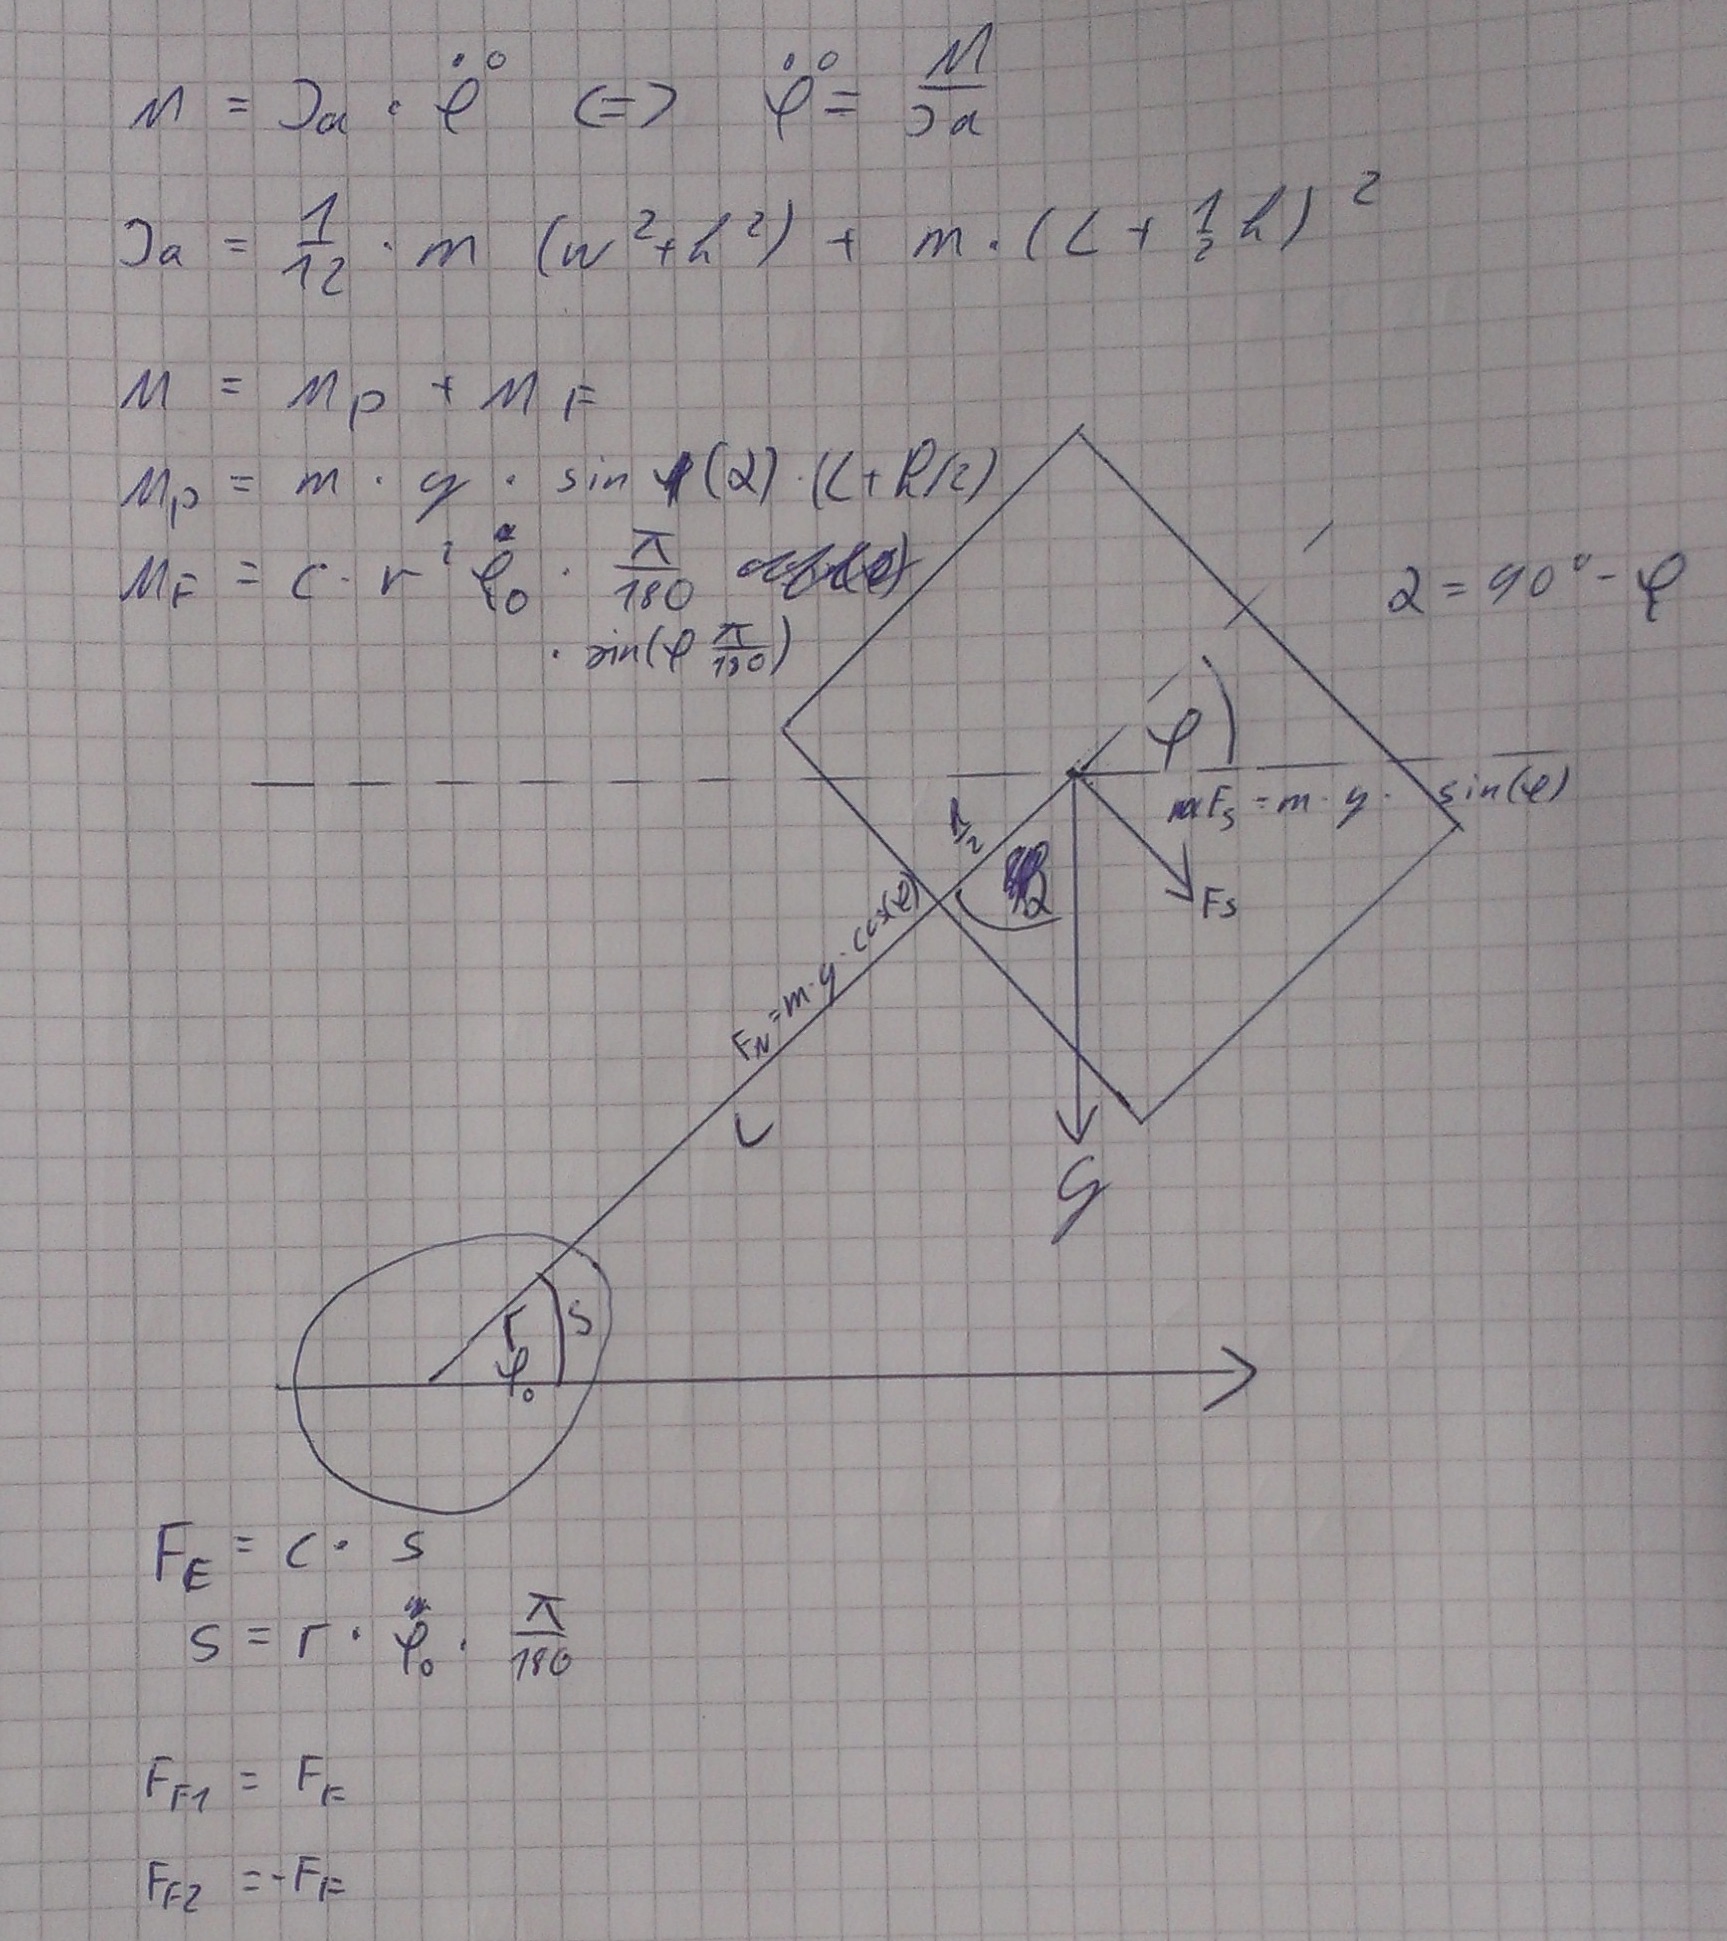 M = Ja · φ̈ <=> φ̈ = M/Ja
Ja = 1/12 · m (w² + h²) + m · (L + 1/2 h)²
M = M_P + M_F
M_P = m · g · sin (α) · (L + h/2)
M_F = c · r² φ₀ · π/180
· sin(φ π/180)
α = 90° - φ
φ
F_S = m · g · sin(φ)
h/2
α
F_S
F_N = m · g · cos(φ)
L
G
r
s
φ₀
F_F = c · s
s = r · φ₀ · π/180
F_F1 = F_F
F_F2 = -F_F